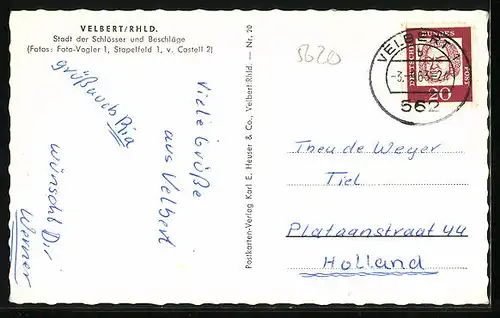 VELBERT/RHLD.
Stadt der Schlösser und Beschläge
(Fotos: Foto-Vogler 1, Stapelfeld 1, v. Castell 2)
Viele Grüße
aus Velbert
wünscht Dir
Werner
grüß auch Pia
Postkarten-Verlag Karl E. Heuser & Co., Velbert/Rhld. — Nr. 20
5620
VELBERT 1
562
DEUTSCHE BUNDESPOST
20
Theu de Weyer
Tiel
Plataanstraat 44
Holland